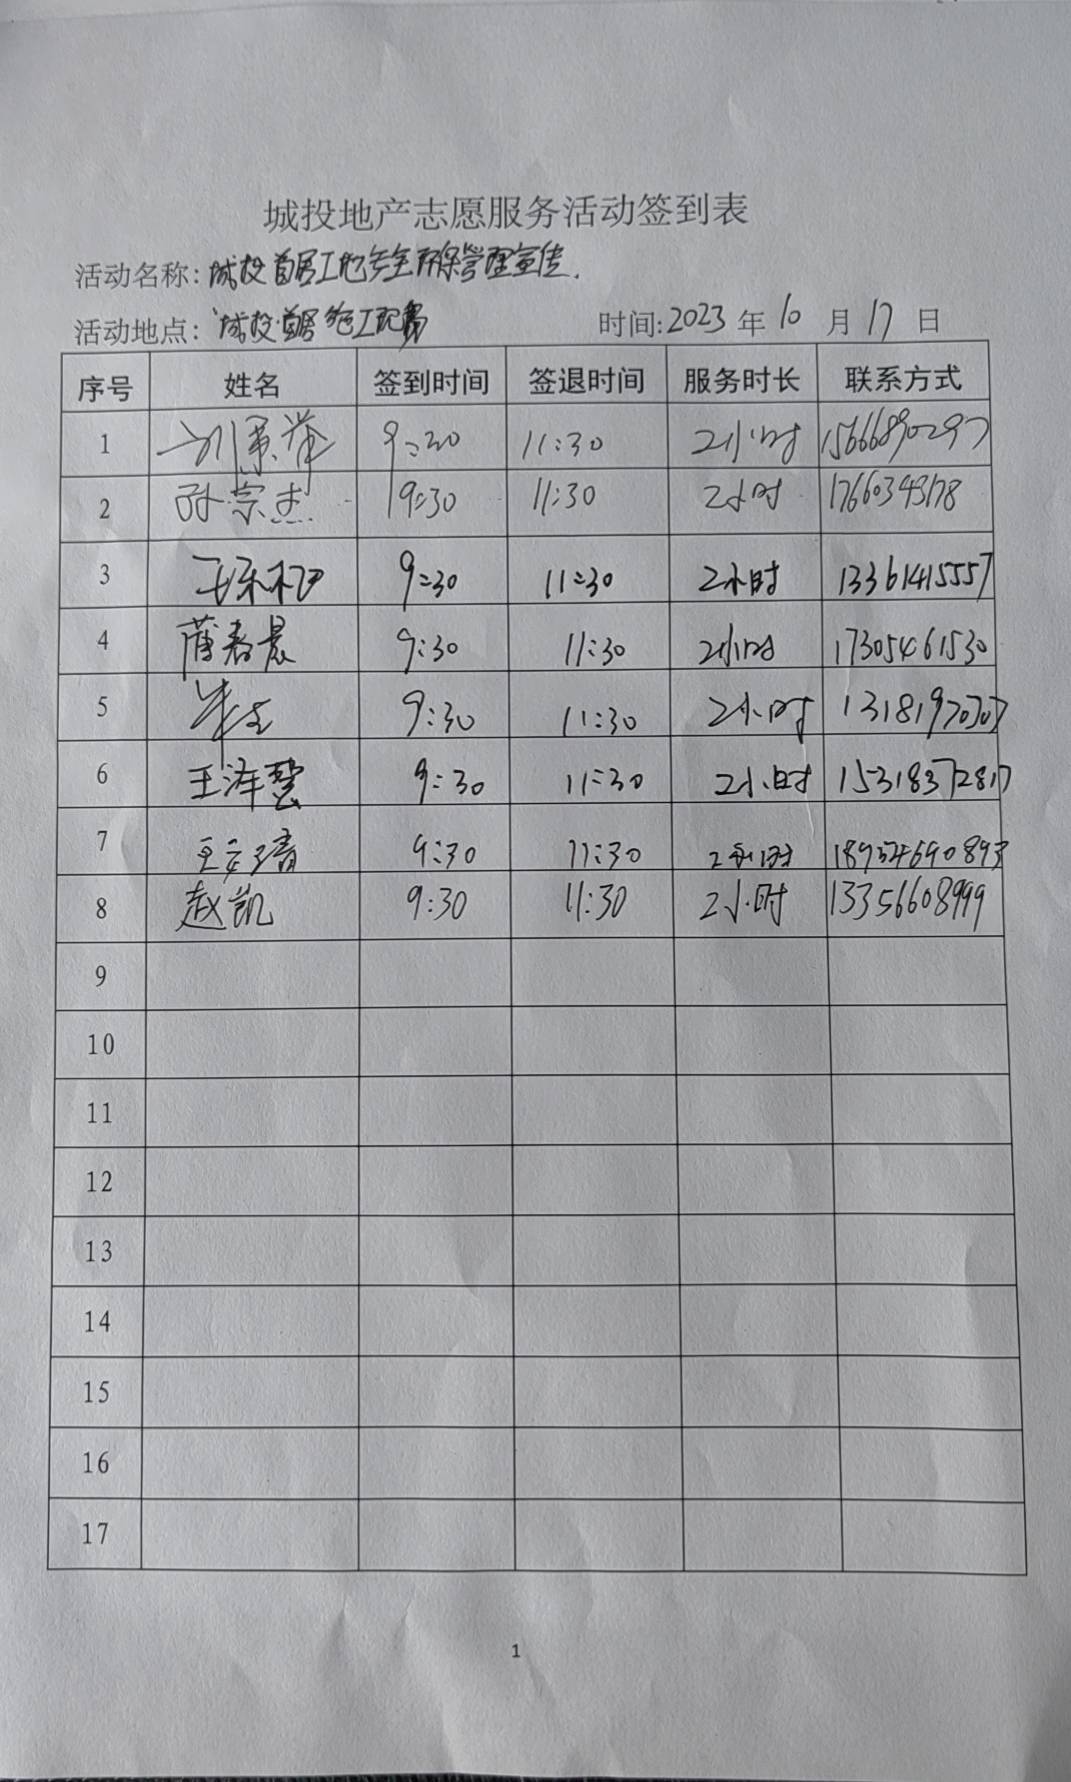 城投地产志愿服务活动签到表
活动名称：城投首居工地安全环保管理宣传.
活动地点：城投首居 时间:2023 年 10 月 17 日
序号 姓名 签到时间 签退时间 服务时长 联系方式
1 9:30 11:30 2小时 15666890297
2 孙宗杰 9:30 11:30 2小时
3 9:30 11:30 2小时 13361415557
4 薄春晨 9:30 11:30 2小时 17305461530
5 9:30 11:30 2小时 13181970707
6 王泽慧 9:30 11:30 2小时 15318372817
7 9:30 11:30 2小时 18954690893
8 赵凯 9:30 11:30 2小时 13356608999
9
10
11
12
13
14
15
16
17
1